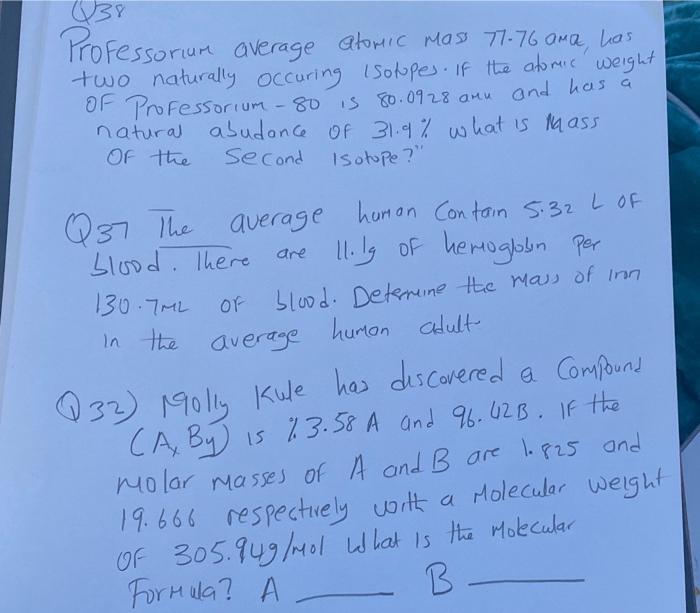 Q38
Professorium average atomic Mass 77.76 ama, has
two naturally occuring Isotopes. IF the atomic weight
OF Professorium - 80 is 80.0928 amu and has a
natural abudance OF 31.9% what is Mass
OF the Second Isotope?"
Q37 The average human Contain 5.32 L OF
blood. There are 11.1g OF hemoglobin Per
130.7ML OF blood. Determine the mass of Iron
In the average human adult
Q32) Molly Kule has discovered a Compound
(Ax By) is %3.58 A and 96.42B. IF the
Molar Masses of A and B are 1.825 and
19.666 respectively with a Molecular Weight
OF 305.94g/Mol What Is the Molecular
Formula? A ____ B ____